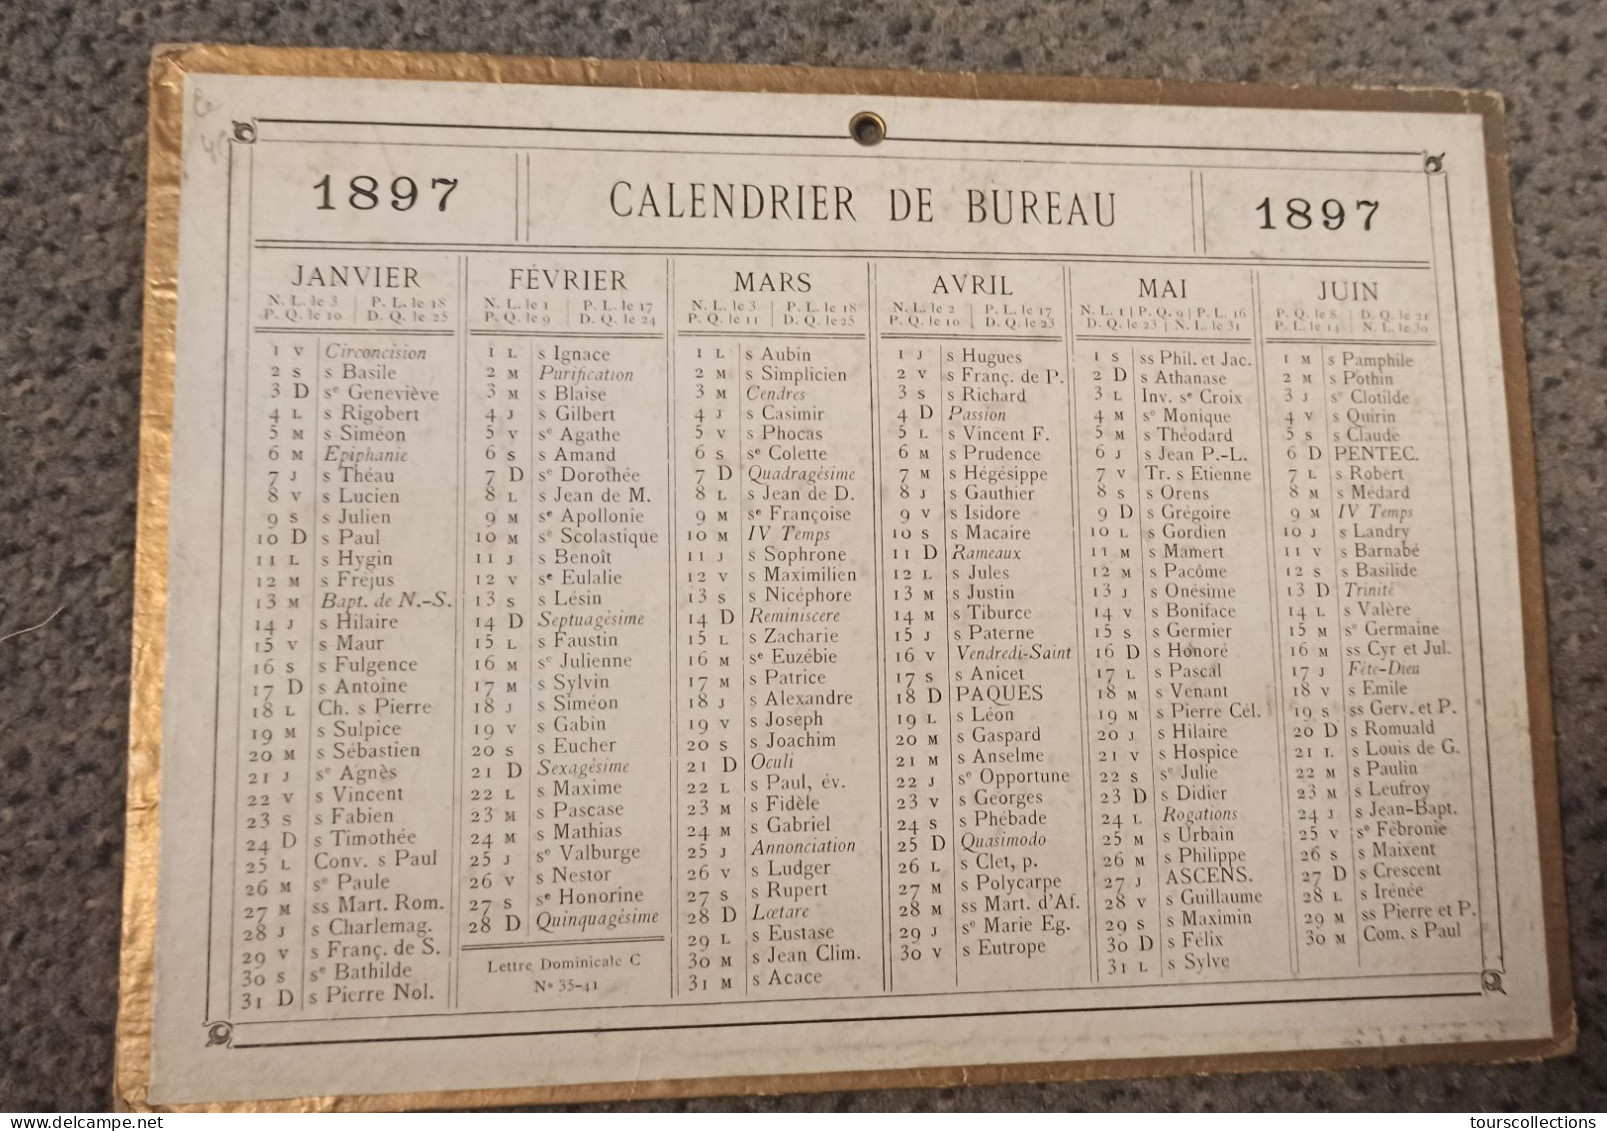 1897
CALENDRIER DE BUREAU
1897
JANVIER
N. L. le 3 | P. L. le 18
P. Q. le 10 | D. Q. le 25
1 V Circoncision
2 S s Basile
3 D sᵉ Geneviève
4 L s Rigobert
5 M s Siméon
6 M Epiphanie
7 J s Théau
8 V s Lucien
9 S s Julien
10 D s Paul
11 L s Hygin
12 M s Fréjus
13 M Bapt. de N.-S.
14 J s Hilaire
15 V s Maur
16 S s Fulgence
17 D s Antoine
18 L Ch. s Pierre
19 M s Sulpice
20 M s Sébastien
21 J sᵉ Agnès
22 V s Vincent
23 S s Fabien
24 D s Timothée
25 L Conv. s Paul
26 M sᵉ Paule
27 M ss Mart. Rom.
28 J s Charlemag.
29 V s Franç. de S.
30 S sᵉ Bathilde
31 D s Pierre Nol.
FÉVRIER
N. L. le 1 | P. L. le 17
P. Q. le 9 | D. Q. le 24
1 L s Ignace
2 M Purification
3 M s Blaise
4 J s Gilbert
5 V sᵉ Agathe
6 S s Amand
7 D sᵉ Dorothée
8 L s Jean de M.
9 M sᵉ Apollonie
10 M sᵉ Scolastique
11 J s Benoît
12 V sᵉ Eulalie
13 S s Lésin
14 D Septuagésime
15 L s Faustin
16 M sᵉ Julienne
17 M s Sylvin
18 J s Siméon
19 V s Gabin
20 S s Eucher
21 D Sexagésime
22 L s Maxime
23 M s Pascase
24 M s Mathias
25 J sᵉ Valburge
26 V s Nestor
27 S sᵉ Honorine
28 D Quinquagésime
Lettre Dominicale C
Nº 35-41
MARS
N. L. le 3 | P. L. le 18
P. Q. le 11 | D. Q. le 25
1 L s Aubin
2 M s Simplicien
3 M Cendres
4 J s Casimir
5 V s Phocas
6 S sᵉ Colette
7 D Quadragésime
8 L s Jean de D.
9 M sᵉ Françoise
10 M IV Temps
11 J s Sophrone
12 V s Maximilien
13 S s Nicéphore
14 D Reminiscere
15 L s Zacharie
16 M sᵉ Euzébie
17 M s Patrice
18 J s Alexandre
19 V s Joseph
20 S s Joachim
21 D Oculi
22 L s Paul, év.
23 M s Fidèle
24 M s Gabriel
25 J Annonciation
26 V s Ludger
27 S s Rupert
28 D Lœtare
29 L s Eustase
30 M s Jean Clim.
31 M s Acace
AVRIL
N. L. le 2 | P. L. le 17
P. Q. le 10 | D. Q. le 23
1 J s Hugues
2 V s Franç. de P.
3 S s Richard
4 D Passion
5 L s Vincent F.
6 M s Prudence
7 M s Hégésippe
8 J s Gauthier
9 V s Isidore
10 S s Macaire
11 D Rameaux
12 L s Jules
13 M s Justin
14 M s Tiburce
15 J s Paterne
16 V Vendredi-Saint
17 S s Anicet
18 D PAQUES
19 L s Léon
20 M s Gaspard
21 M s Anselme
22 J sᵉ Opportune
23 V s Georges
24 S s Phébade
25 D Quasimodo
26 L s Clet, p.
27 M s Polycarpe
28 M ss Mart. d'Af.
29 J sᵉ Marie Eg.
30 V s Eutrope
MAI
N. L. 1 | P. Q. 9 | P. L. 16
D. Q. le 23 | N. L. le 31
1 S ss Phil. et Jac.
2 D s Athanase
3 L Inv. sᵉ Croix
4 M sᵉ Monique
5 M s Théodard
6 J s Jean P.-L.
7 V Tr. s Etienne
8 S s Orens
9 D s Grégoire
10 L s Gordien
11 M s Mamert
12 M s Pacôme
13 J s Onésime
14 V s Boniface
15 S s Germier
16 D s Honoré
17 L s Pascal
18 M s Venant
19 M s Pierre Cél.
20 J s Hilaire
21 V s Hospice
22 S sᵉ Julie
23 D s Didier
24 L Rogations
25 M s Urbain
26 M s Philippe
27 J ASCENS.
28 V s Guillaume
29 S s Maximin
30 D s Félix
31 L s Sylve
JUIN
P. Q. le 8 | D. Q. le 21
P. L. le 14 | N. L. le 30
1 M s Pamphile
2 M s Pothin
3 J sᵉ Clotilde
4 V s Quirin
5 S s Claude
6 D PENTEC.
7 L s Robert
8 M s Médard
9 M IV Temps
10 J s Landry
11 V s Barnabé
12 S s Basilide
13 D Trinité
14 L s Valère
15 M sᵉ Germaine
16 M ss Cyr et Jul.
17 J Fête-Dieu
18 V s Emile
19 S ss Gerv. et P.
20 D s Romuald
21 L s Louis de G.
22 M s Paulin
23 M s Leufroy
24 J s Jean-Bapt.
25 V sᵉ Fébronie
26 S s Maixent
27 D s Crescent
28 L s Irénée
29 M ss Pierre et P.
30 M Com. s Paul
tourscollections